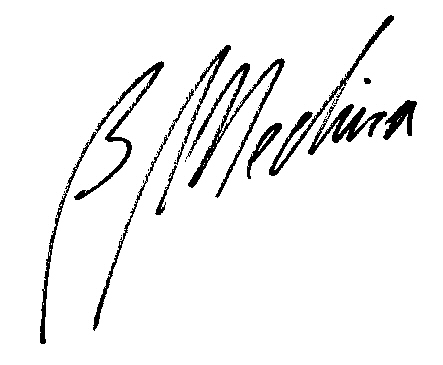 B Medina